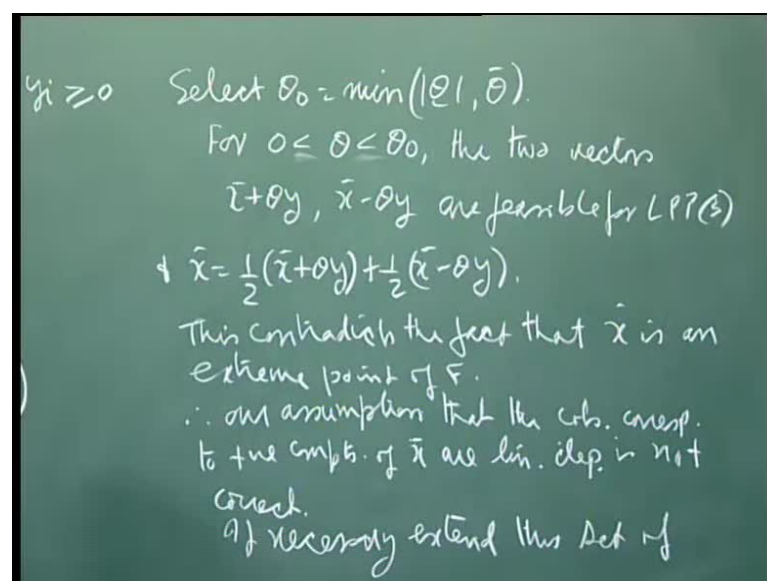 yi ≥ 0 Select θ₀ = min(|θ̲|, θ̄).
For 0 ≤ θ ≤ θ₀, the two vectors
x̄+θy, x̄-θy are feasible for LPP(3)
& x̄ = 1/2 (x̄+θy) + 1/2 (x̄-θy).
This contradicts the fact that x̄ is an
extreme point of F.
∴ our assumption that the cols. corresp.
to +ve compts. of x̄ are lin. dep. is not
correct.
If necessary extend this set of